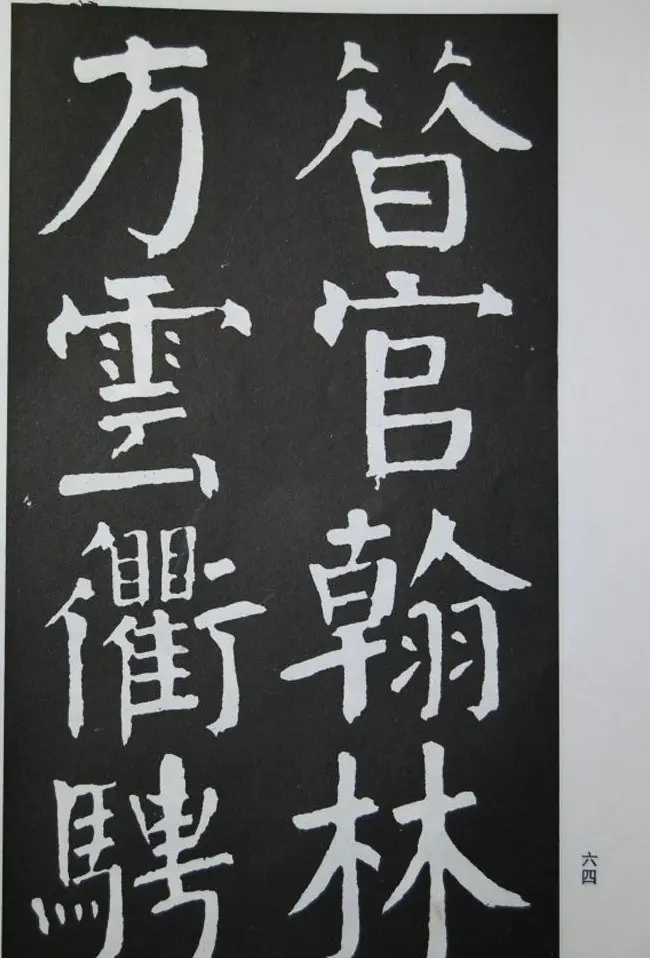 官翰林
方雲衢騁
六四